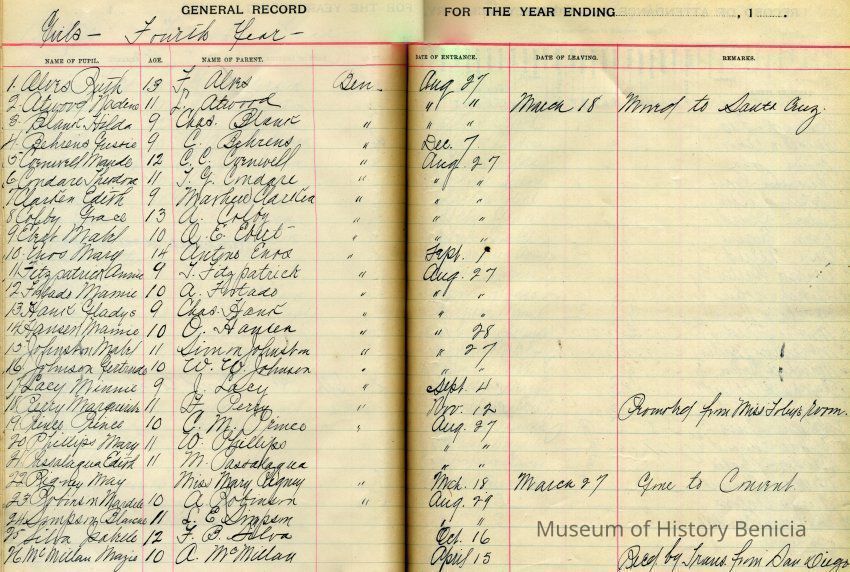 GENERAL RECORD FOR THE YEAR ENDING , 1
Girls - Fourth Year -
NAME OF PUPIL. AGE. NAME OF PARENT. DATE OF ENTRANCE. DATE OF LEAVING. REMARKS.
1. Alves Ruth 13 F. Alves Ben. Aug 27
2. Atwood 11 Atwood " " March 18 Moved to Santa Cruz.
3. Blank Hilda 9 Chas. Blank " " "
4. Behrens Gussie 9 C. Behrens " Dec. 7
5 Cornwell Maude 12 C. C. Cornwell " Aug. 27
6 Condare Theodora 11 T. G. Condare " " "
7 Edith 9 " " "
8 Colby Grace 13 A. Colby " " "
9 Ebert Mabel 10 O. E. Ebert " " "
10. Enos Mary 14 Antone Enos Sept. 1
11. Fitzpatrick Annie 9 T. Fitzpatrick " Aug. 27
12 Furtado Mamie 10 A. Furtado " " "
13 Hank Gladys 9 Chas. Hank " " "
14 Hansen Mamie 10 O. Hansen " " 28
15 Johnston Mabel 11 Simon Johnston " " 27
16 Johnson Gertrude 10 W. W. Johnson " " "
17 Lacy Minnie 9 J. Lacey " Sept. 4
18 Perry Marguerite 11 F. Perry " Nov. 12 Promoted from Miss room.
19 Prince 10 A. M. Prince " Aug. 27
20 Phillips Mary 11 W. Phillips " "
21 Passalaqua Edith 11 M. Passalaqua " "
22 Rigney May Miss Mary Rigney " Mch. 18 March 27 Gone to Convent
23 Robinson 10 A. Robinson " Aug. 29
24 Simpson Blanche 11 E. Simpson
25 Silva 12 F. B. Silva Oct. 16
26 McMillan Mazie 10 A. McMillan April 15 Recd. by Trans. from San Diego
Museum of History Benicia